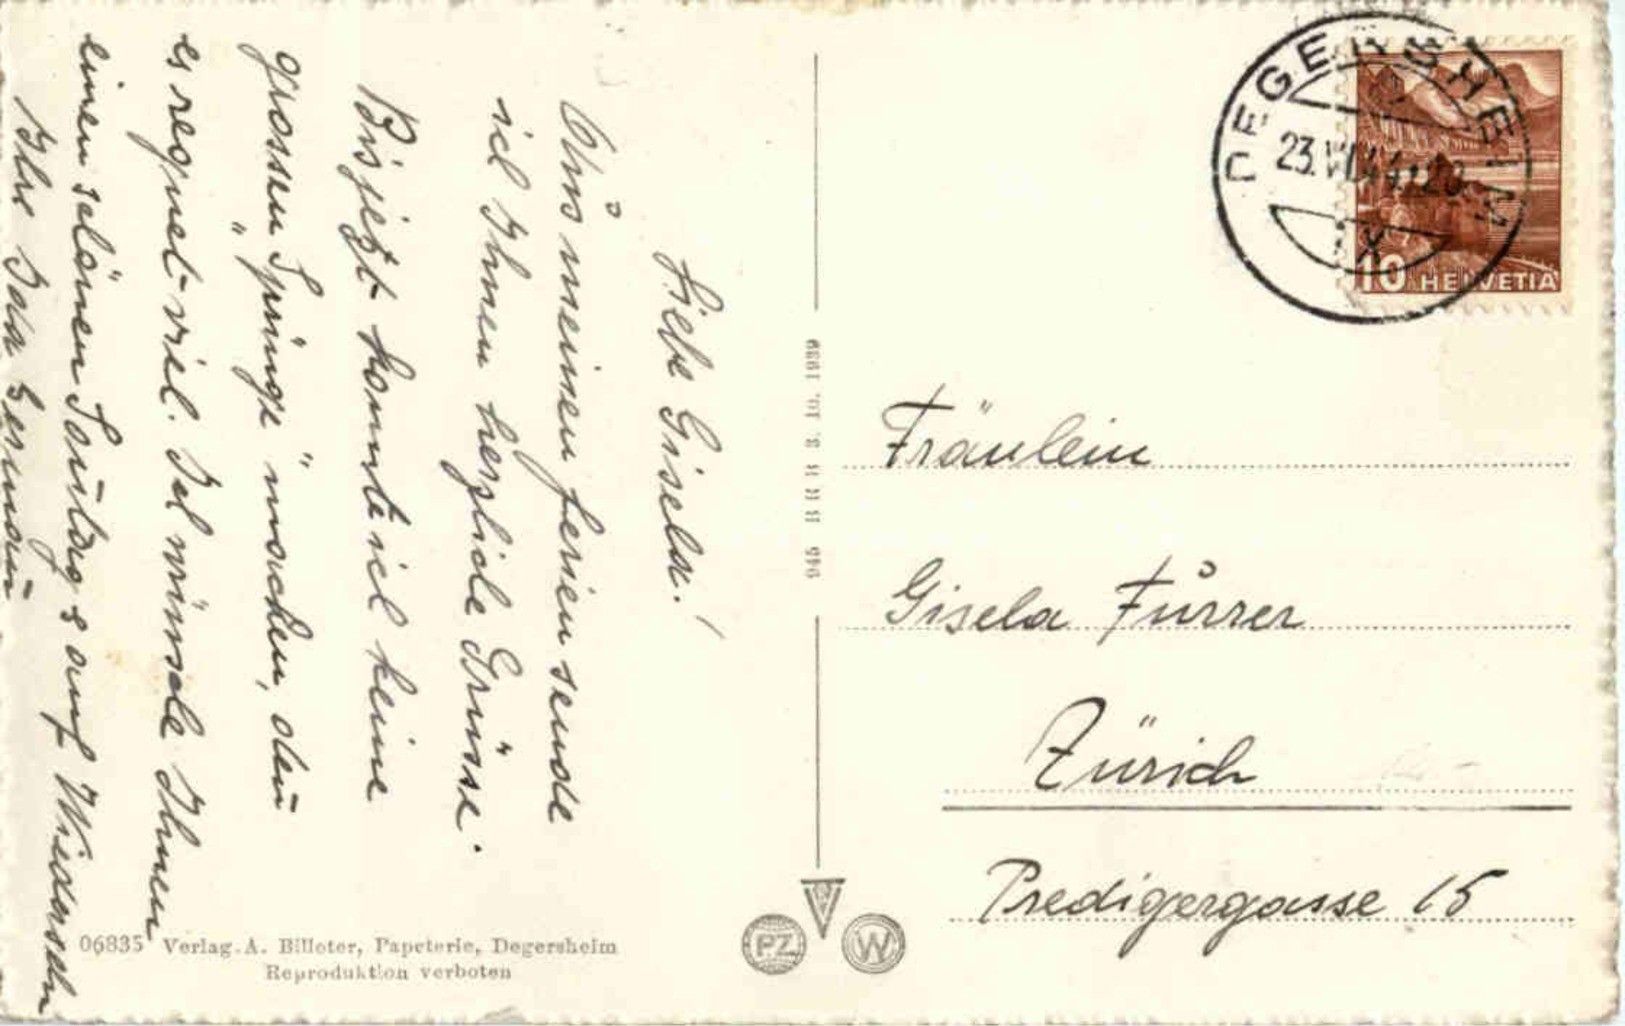 Liebe Gisela!
Aus meinen Ferien sende
ich Ihnen herzliche Grüsse.
Bis jetzt konnte ich keine
grossen "Sprünge" machen, denn
es regnet viel. Ich wünsche Ihnen
einen schönen Sonntag & auf Wiedersehn
Ihre
945 BRB 3. 10. 1939
DEGERSHEIM
23.VI.44.20
10 HELVETIA
Fräulein
Gisela Furrer
Zürich
Predigergasse 15
PZ W
06835 Verlag A. Billeter, Papeterie, Degersheim
Reproduktion verboten